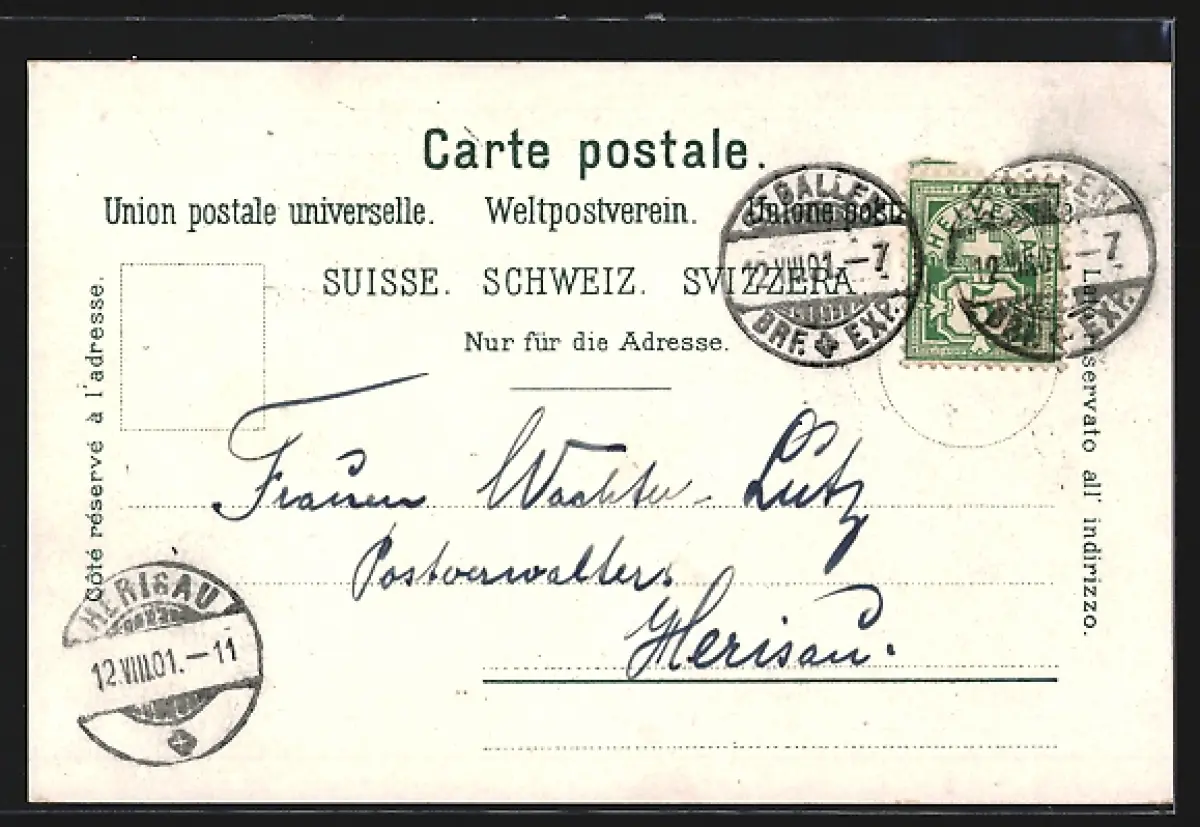 Carte postale.
Union postale universelle. Weltpostverein. Unione post
SUISSE. SCHWEIZ. SVIZZERA.
Nur für die Adresse.
Côté réservé à l'adresse.
riservato all' indirizzo.
GALLEN
12.VIII.01.–7
BRF. EXP.
HELVETIA
LLEN
12.VIII.01.–7
BRF. EXP.
Frauen Lutz
Postverwalters
Herisau.
HERISAU
12.VIII.01.–11